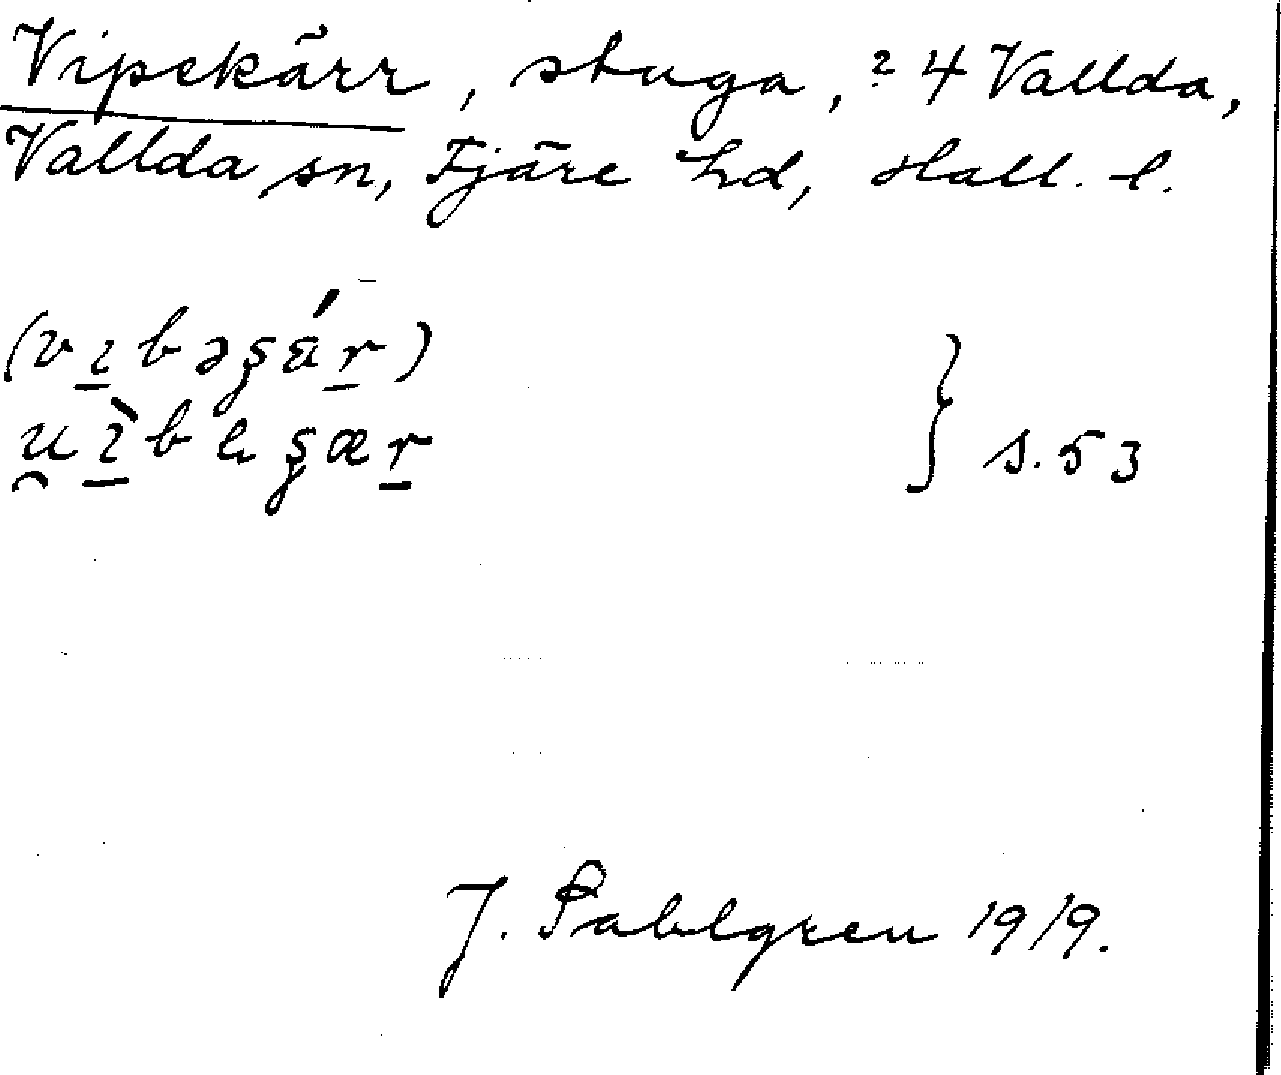 Vipekärr, stuga, ? 4 Vallda,
Vallda sn, Fjäre hd, Hall. l.
s. 53
J. Sahlgren 1919.